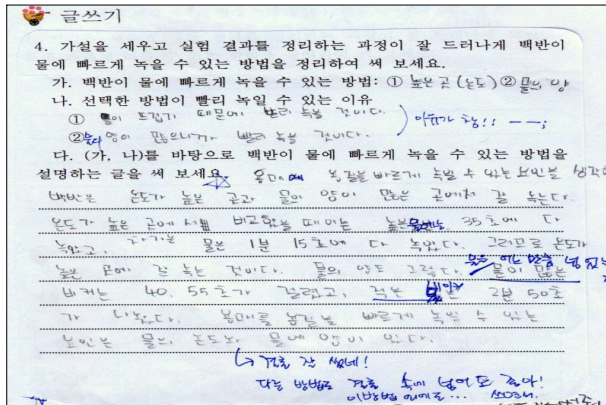 글쓰기
4. 가설을 세우고 실험 결과를 정리하는 과정이 잘 드러나게 백반이
물에 빠르게 녹을 수 있는 방법을 정리하여 써 보세요.
가. 백반이 물에 빠르게 녹을 수 있는 방법: ① 높은 곳 (온도) ② 물의 양
나. 선택한 방법이 빨리 녹일 수 있는 이유
① 물이 뜨겁기 때문에 빨리 녹을 것이다.
② 양이 많으니까 빨리 녹을 것이다.
이유가 참!! ㅡㅡ;
다. (가, 나)를 바탕으로 백반이 물에 빠르게 녹을 수 있는 방법을
설명하는 글을 써 보세요.
빠르게 녹일 수 있는
백반은 온도가 높은 곳과 물의 양이 많은 곳에서 잘 녹는다.
온도가 높은 곳에서 비교했을 때에는 높은 35초에 다
녹았고, 물은 1분 15초에 다 녹았다. 그러므로 온도가
높은 곳에 잘 녹는 것이다. 물의 양도 그렇다. 물이 많은
비커는 40 55초가 걸렸고, 적은 2분 50초
가 나왔다. 용매를 빠르게 녹일 수 있는
물의 온도와 물에 양이 있다.
결론 잘 썼네!
다른 방법도 결론 속에 넣어도 좋아!